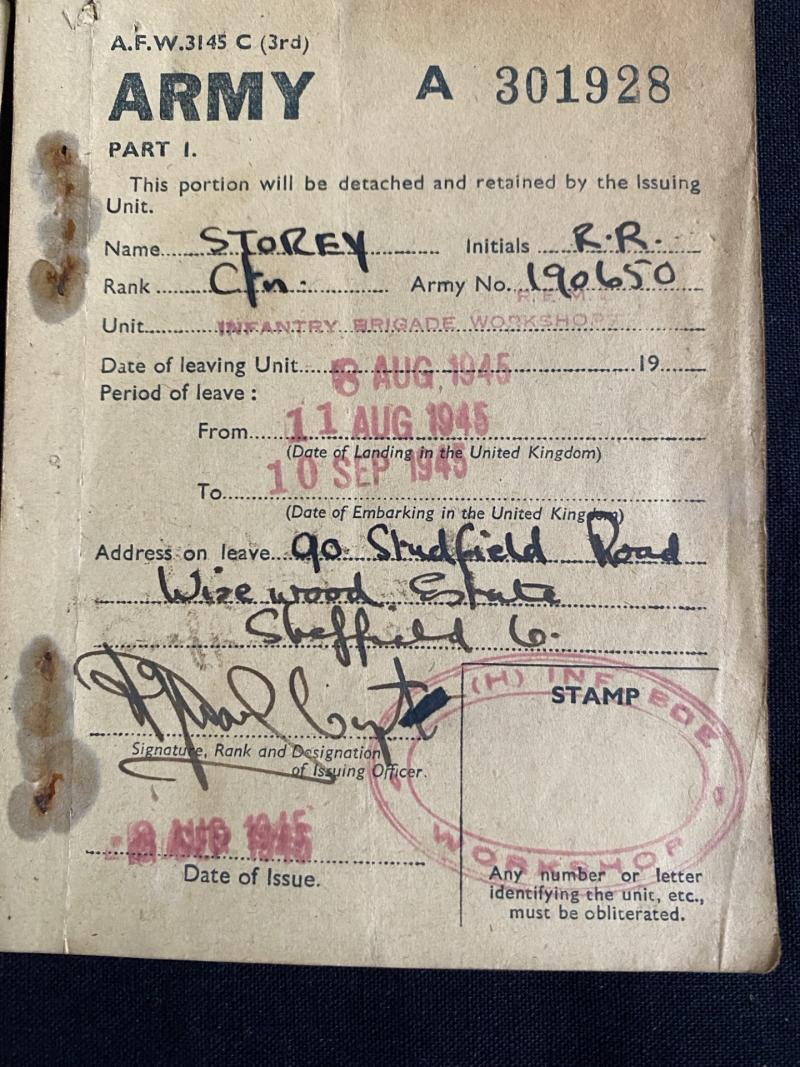 A.F.W.3145 C (3rd)
ARMY A 301928
PART I.
This portion will be detached and retained by the Issuing
Unit.
Name STOREY Initials R.R.
Rank Cfn. Army No. 190650
R.E.M.E.
Unit INFANTRY BRIGADE WORKSHOP
Date of leaving Unit 8 AUG 1945 19
Period of leave :
From 11 AUG 1945
(Date of Landing in the United Kingdom)
To 10 SEP 1945
(Date of Embarking in the United Kingdom)
Address on leave 90 Studfield Road
Wisewood Estate
Sheffield 6.
Signature, Rank and Designation
of Issuing Officer.
STAMP
(H) INF BDE
WORKSHOP
8 AUG 1945
Date of Issue.
Any number or letter
identifying the unit, etc.,
must be obliterated.